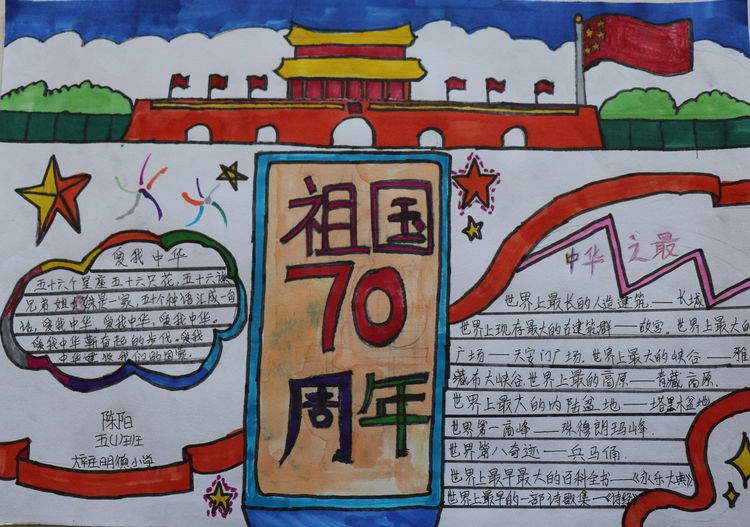 祖国
70
周年
爱我中华
五十六个星座五十六只花,五十六族
兄弟姐妹是一家,五十个种语汇成一句
话,爱我中华,爱我中华,爱我中华。
爱我中华奋起的步伐。爱我
中华建设我们的国家.
陈阳
五(1)班
明德小学
中华之最
世界上最长的人造建筑——长城
世界上现存最大的古建筑群——故宫。世界上最大的
广场——天安门广场。世界上最大的峡谷——雅
藏布大峡谷.世界上最的高原——青藏高原.
世界上最大的内陆盆地——塔里木盆地
世界第一高峰——珠穆朗玛峰.
世界第八奇迹——兵马俑.
世界上最早最大的百科全书——《永乐大典》
世界上最早的一部诗歌集—《诗经》